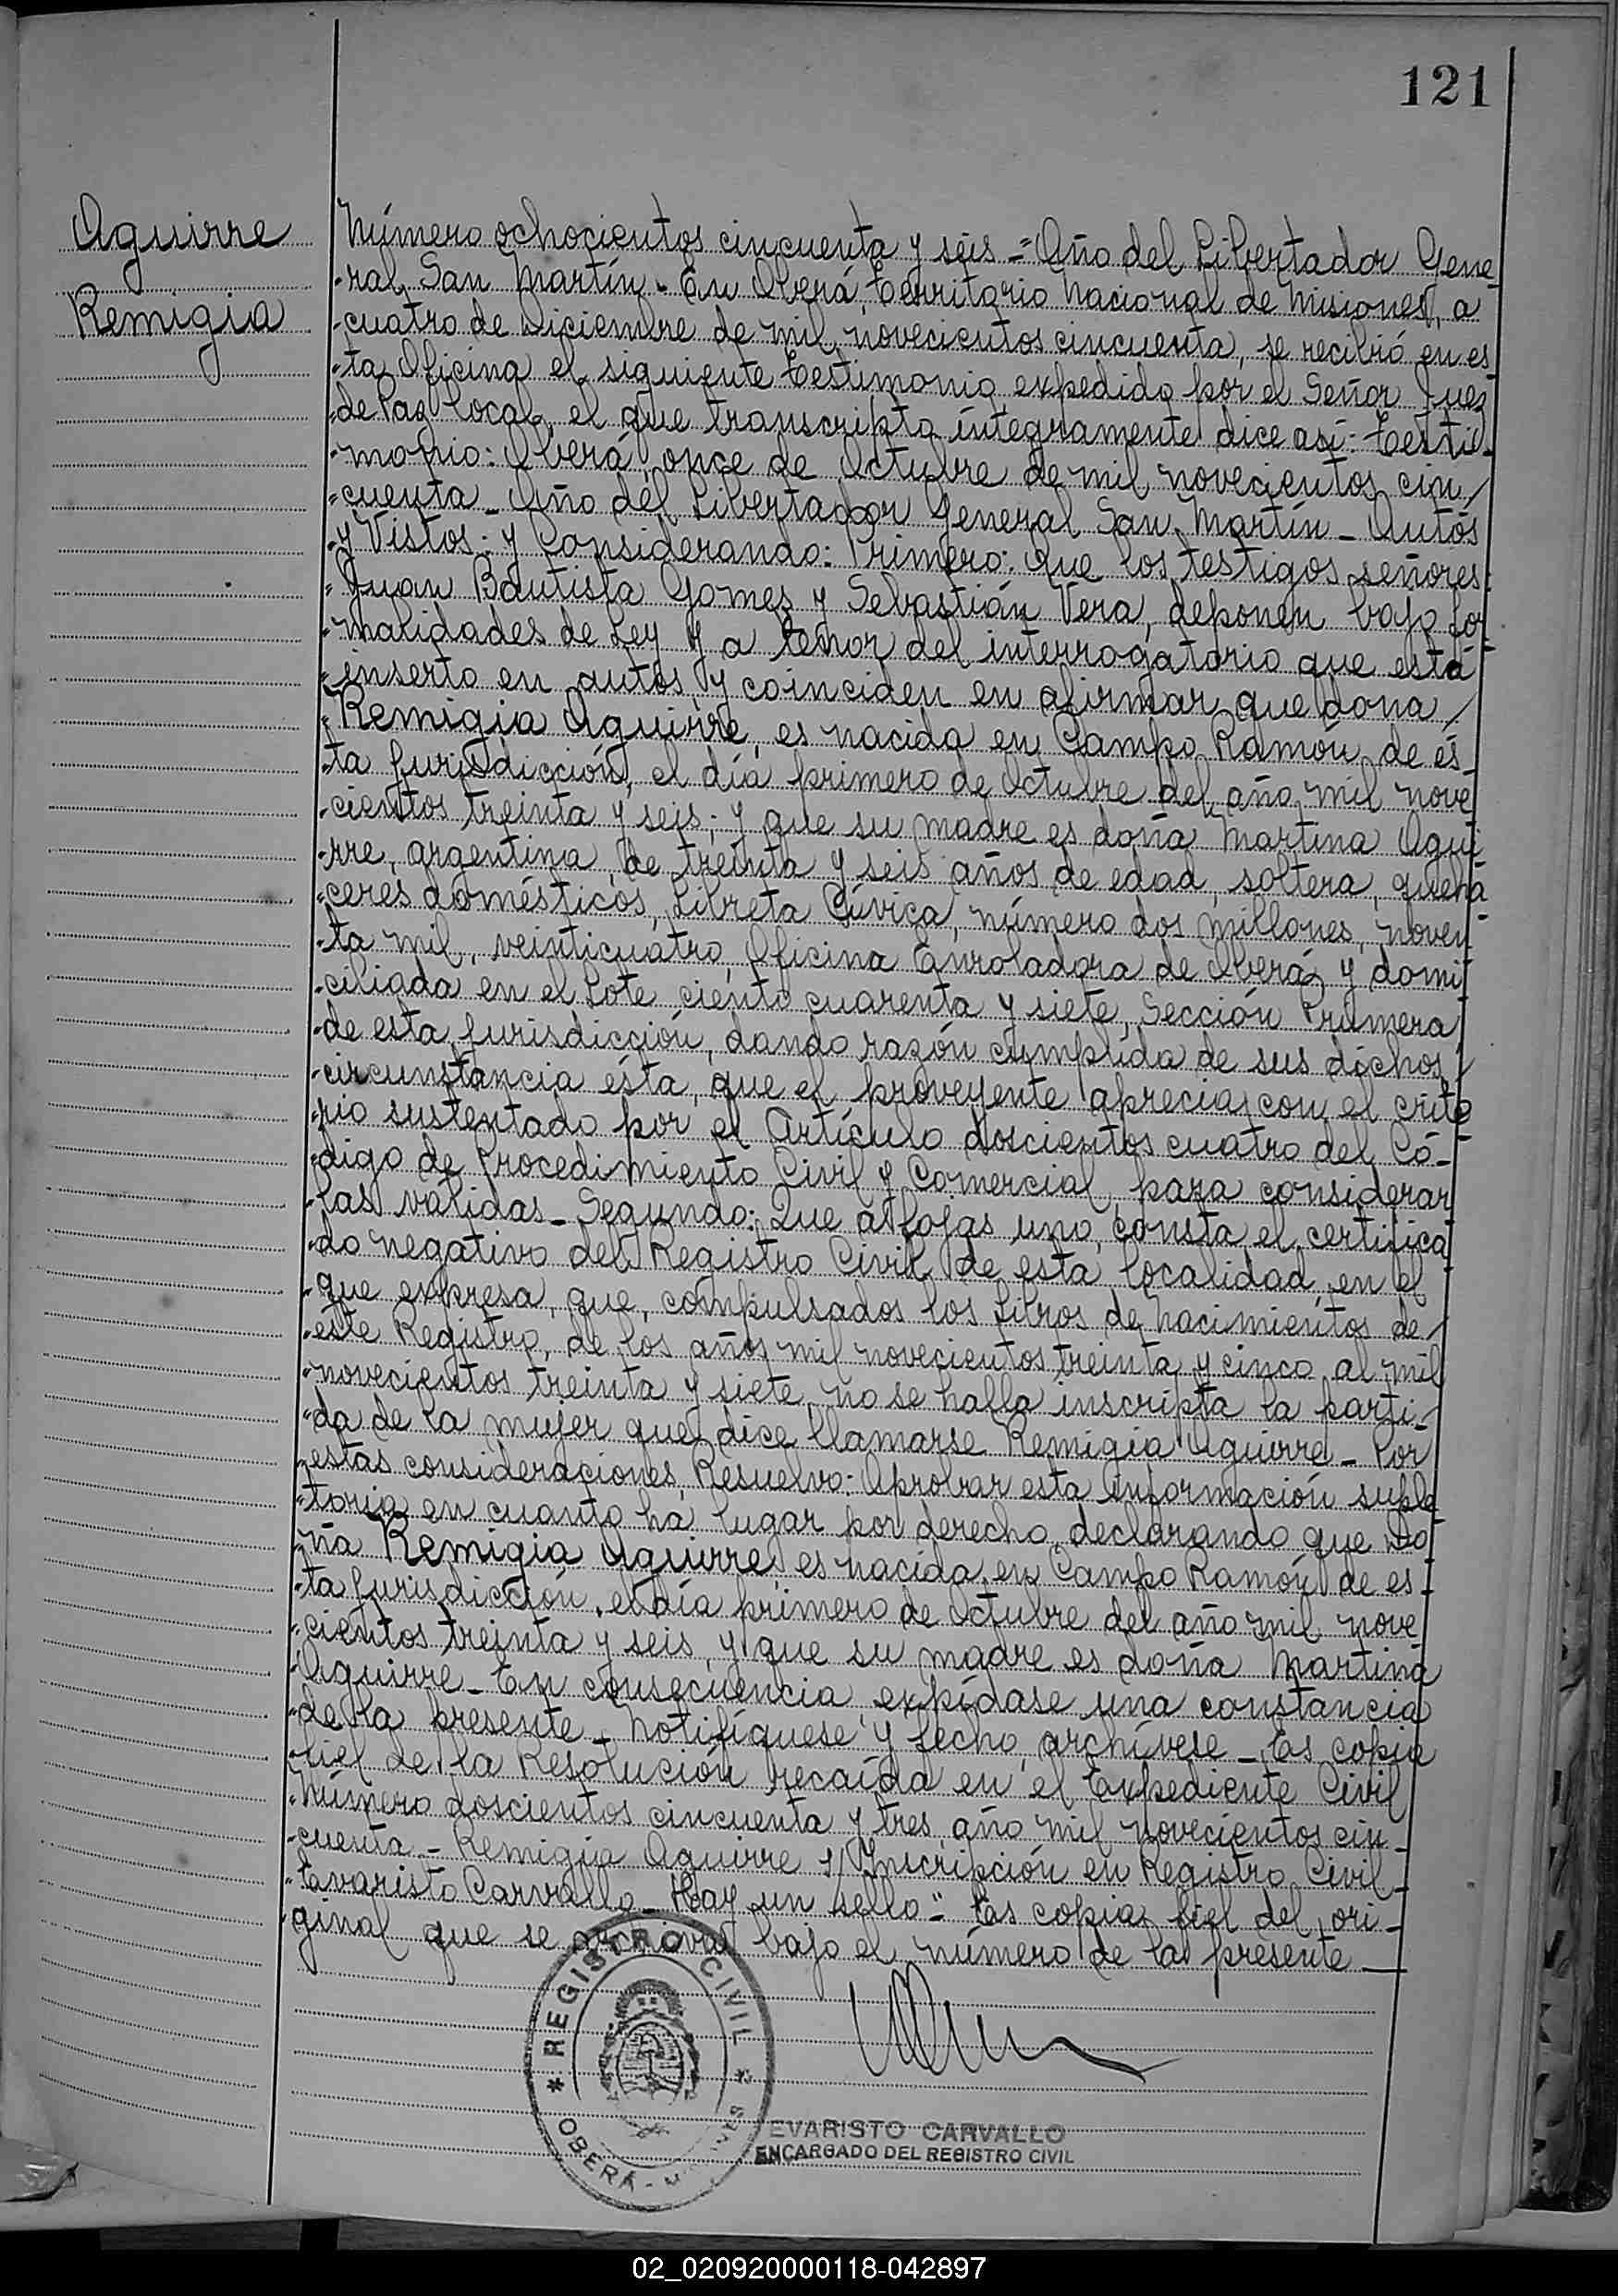 121
Aguirre
Remigia
Número ochocientos cincuenta y seis = Año del Libertador Gene-
ral San Martín - En Oberá, Territorio Nacional de Misiones, a
cuatro de Diciembre de mil novecientos cincuenta, se recibió en es-
ta Oficina el siguiente testimonio expedido por el Señor Juez
de Paz local, el que transcripto íntegramente dice así: Testi-
monio: Oberá, once de Octubre de mil novecientos cin/
cuenta - Año del Libertador General San Martín - Autos
y Vistos: y Considerando: Primero: Que los testigos señores:
Juan Bautista Gomes y Sebastián Vera, deponen bajo for-
malidades de Ley y a tenor del interrogatorio que está
inserto en autos y coinciden en afirmar que dona/
Remigia Aguirre, es nacida en Campo Ramón de és-
ta Jurisdicción, el día primero de Octubre del año mil nove
cientos treinta y seis; y que su madre es doña Martina Agui-
rre, argentina, de treinta y seis años de edad, soltera, queha-
ceres domésticos, Libreta Cívica, número dos millones, noven-
ta mil, veinticuatro, Oficina Enroladora de Oberá y domi-
ciliada en el Lote ciento cuarenta y siete, Sección Primera,
de esta Jurisdicción, dando razón cumplida de sus dichos,/
circunstancia ésta, que el proveyente aprecia con el crite
rio sustentado por el Artículo doscientos cuatro del Có-
digo de Procedimiento Civil y Comercial, para considerar
las válidas - Segundo: Que a fojas uno, consta el certifica
do negativo del Registro Civil de esta localidad, en el
que expresa, que, compulsados los Libros de Nacimientos de/
este Registro, de los años mil novecientos treinta y cinco al mil
novecientos treinta y siete, no se halla inscripta la parti-/
da de la mujer que dice llamarse Remigia Aguirre - Por
estas consideraciones, Resuelvo: Aprobar esta Información suple
toria en cuanto há lugar por derecho, declarando que Do-
ña Remigia Aguirre, es nacida en Campo Ramón de es-
ta Jurisdicción, el día primero de Octubre del año mil nove
cientos treinta y seis, y que su madre es doña Martina
Aguirre - En consecuencia, expídase una constancia
de la presente - Notifíquese y fecho, archívese - Es copia
fiel de la Resolución recaída en el Expediente Civil
Número doscientos cincuenta y tres, año mil novecientos cin-
cuenta - Remigia Aguirre s/ Inscripción en Registro Civil -
Evaristo Carvallo - Hay un sello" - Es copia fiel del ori-
ginal que se archiva bajo el número de la presente
REGISTRO CIVIL
OBERÁ - MISIONES
EVARISTO CARVALLO
ENCARGADO DEL REGISTRO CIVIL
02_020920000118-042897